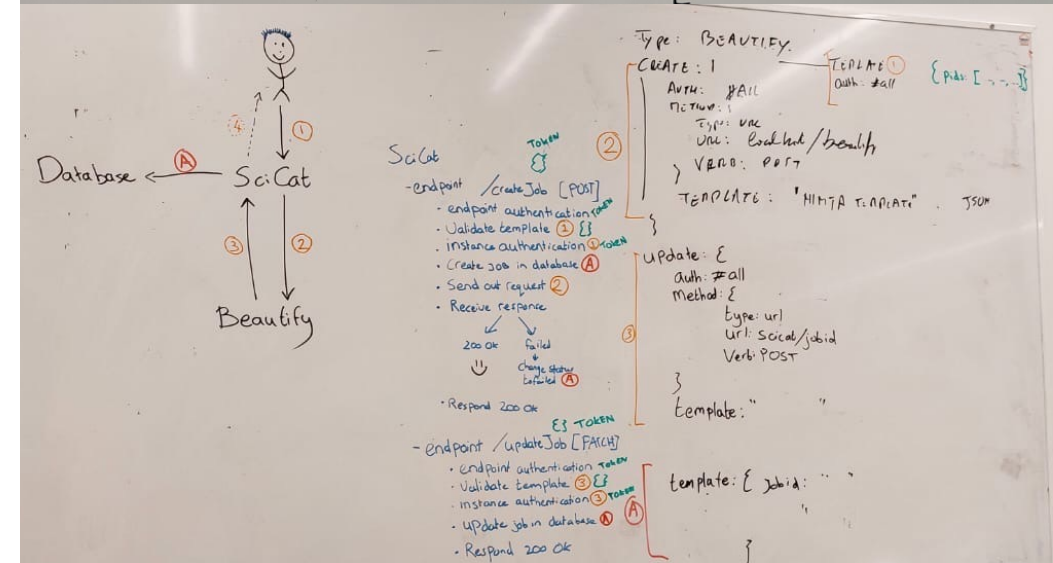 4
1
Database
A
SciCat
3
2
Beautify
SciCat
TOKEN
{}
- endpoint /createJob [POST]
• endpoint authentication TOKEN
• Validate template 1 {}
• instance authentication 1 TOKEN
• Create job in database A
• Send out request 2
• Receive response
200 OK failed
change status
to failed A
• Respond 200 OK
{} TOKEN
- endpoint /updateJob [PATCH]
• endpoint authentication TOKEN
• Validate template 3 {}
• instance authentication 3 TOKEN
• update job in database A
• Respond 200 OK
Type: BEAUTIFY
2
CREATE: {
AUTH: #ALL
METHOD: {
Type: URL
URL: localhost/beautify
} VERB: POST
TEMPLATE: " TEMPLATE". JSON
}
TEMPLATE 1
auth: #all
{ pids: [ -, -, ...]}
3
update: {
auth: #all
method: {
type: url
url: scicat/jobid
Verb: POST
}
template: " "
A
template: { jobid: " "
" "
}